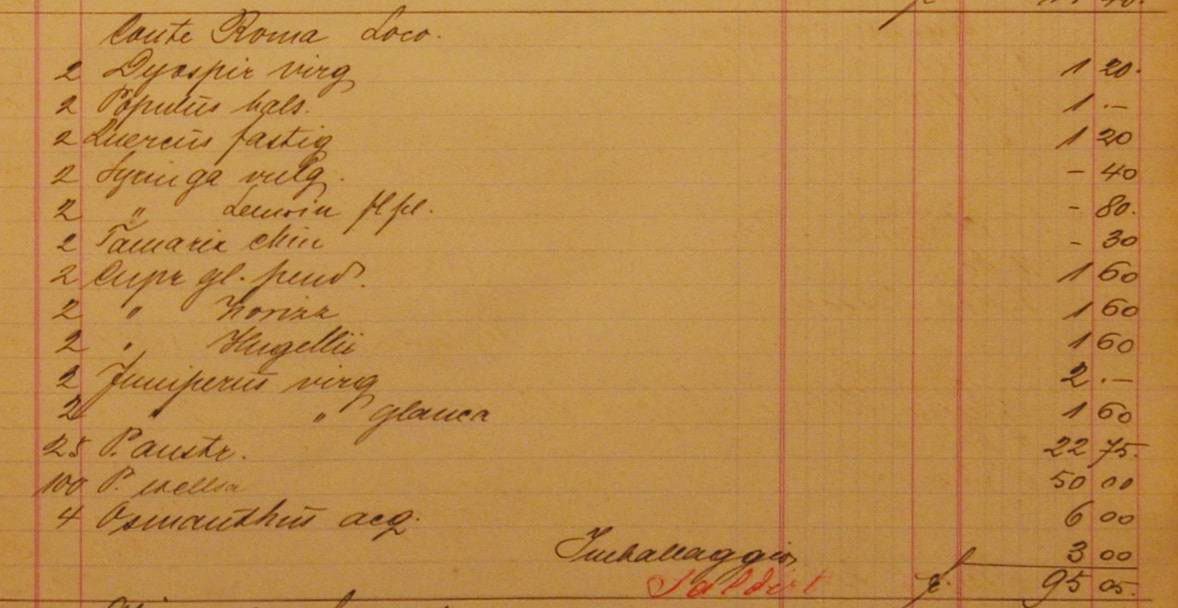 Conte Roma Loco.
2 Dyospir virg 1 20.
2 Populus bals. 1 .–
2 Quercus fastig 1 20
2 Syringa vulg. - 40
2 " Lemoin fl pl. - 80.
2 Tamarix chin - 30
2 Cupr gl. pend. 1 60
2 " horizz 1 60
2 " Hugellii 1 60
2 Juniperus virg 2 .–
2 " " glauca 1 60
25 P. austr. 22 75.
100 P. excelsa 50 00
4 Osmanthus acq. 6 00
Imballaggio 3 00
Saldirt £. 95 05.